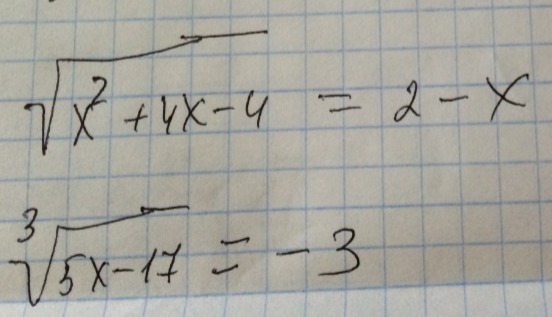 √(x² + 4x - 4) = 2 - x
∛(5x - 17) = -3